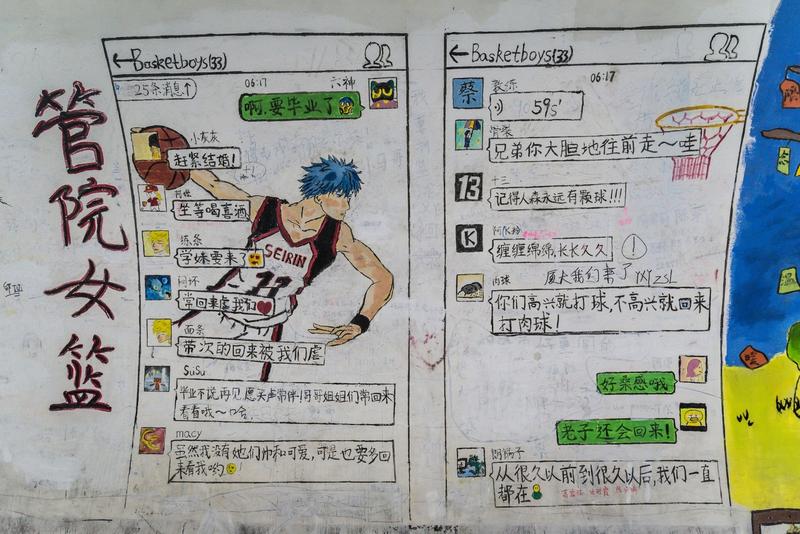 管院女篮
Basketboys(33)
25条消息↑
06:17
六神
啊,要毕业了
小灰灰
赶紧结婚!
坐等喝喜酒
练条
学妹要来了
阿环
常回来虐我们
面条
带次的回来被我们虐
SuSu
毕业不说再见,愿笑声常伴!哥哥姐姐们常回来
看看哦~口合
macy
虽然我没有她们帅和可爱,可是也要多回
来看我哟
SEIRIN
11
Basketboys(33)
06:17
蔡
59s'
兄弟你大胆地往前走~哇
13
十三
记得人森永远有颗球!!!
K
缠缠绵绵,长长久久
!
厦大我们来了YXYZSL
肉球
你们高兴就打球,不高兴就回来
打肉球!
好桑感哦
老子还会回来!
从很久以前到很久以后,我们一直
都在